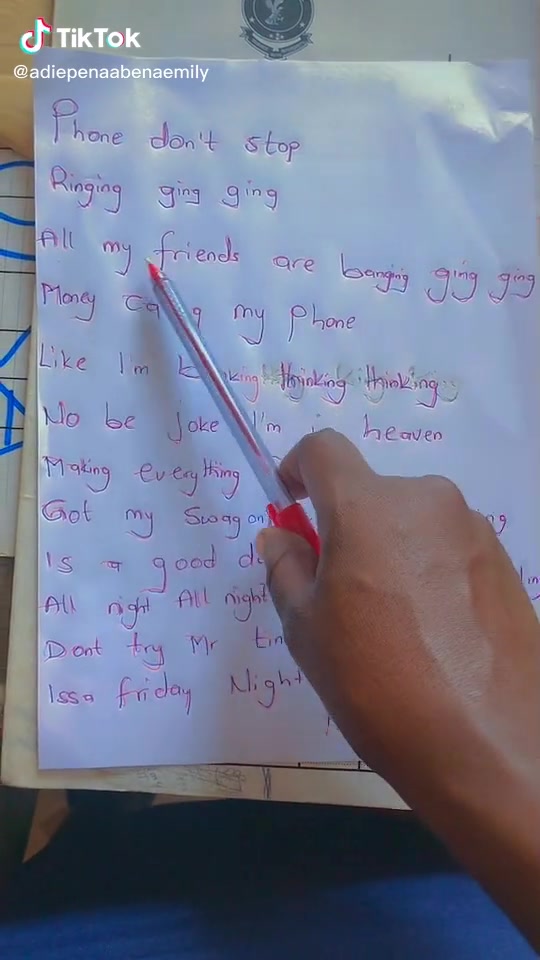 TikTok
@adiepenaabenaemily
Phone don't stop
Ringing ging ging
All my friends are banging ging ging
Money my phone
Like I'm thinking thinking
No be joke I'm heaven
Making everything
Got my Swag on
Is a good
All night All night
Dont try Mr
Issa friday Night